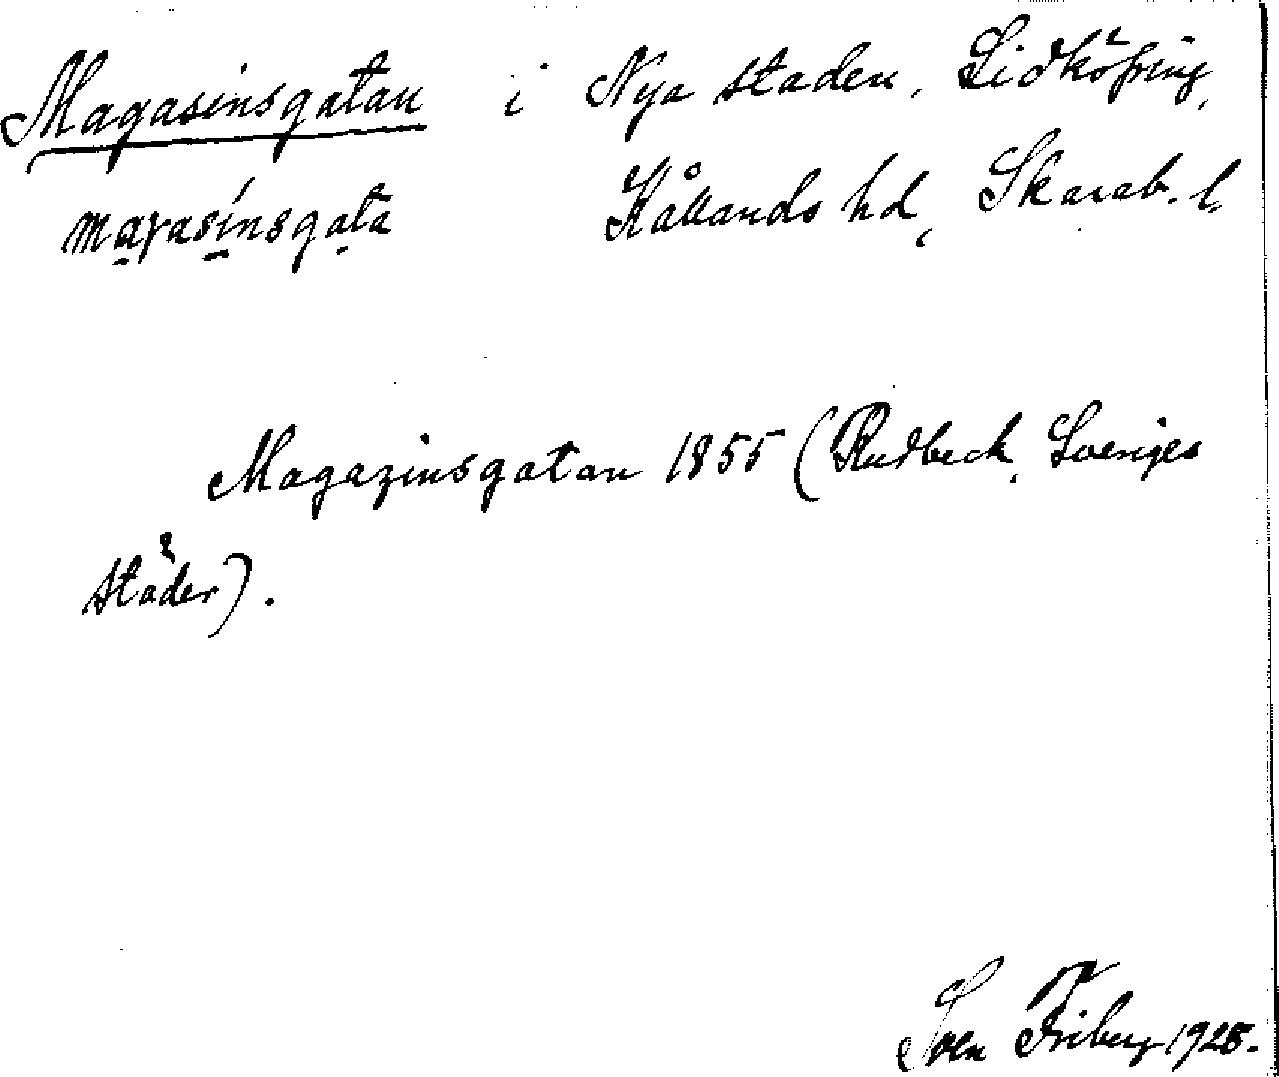 Magasinsgatan i Nya staden, Lidköping,
Kållands hd, Skarab. l.
Magazinsgatan 1855 (Rudbeck, Sveriges
städer).
Sven Friberg 1925.